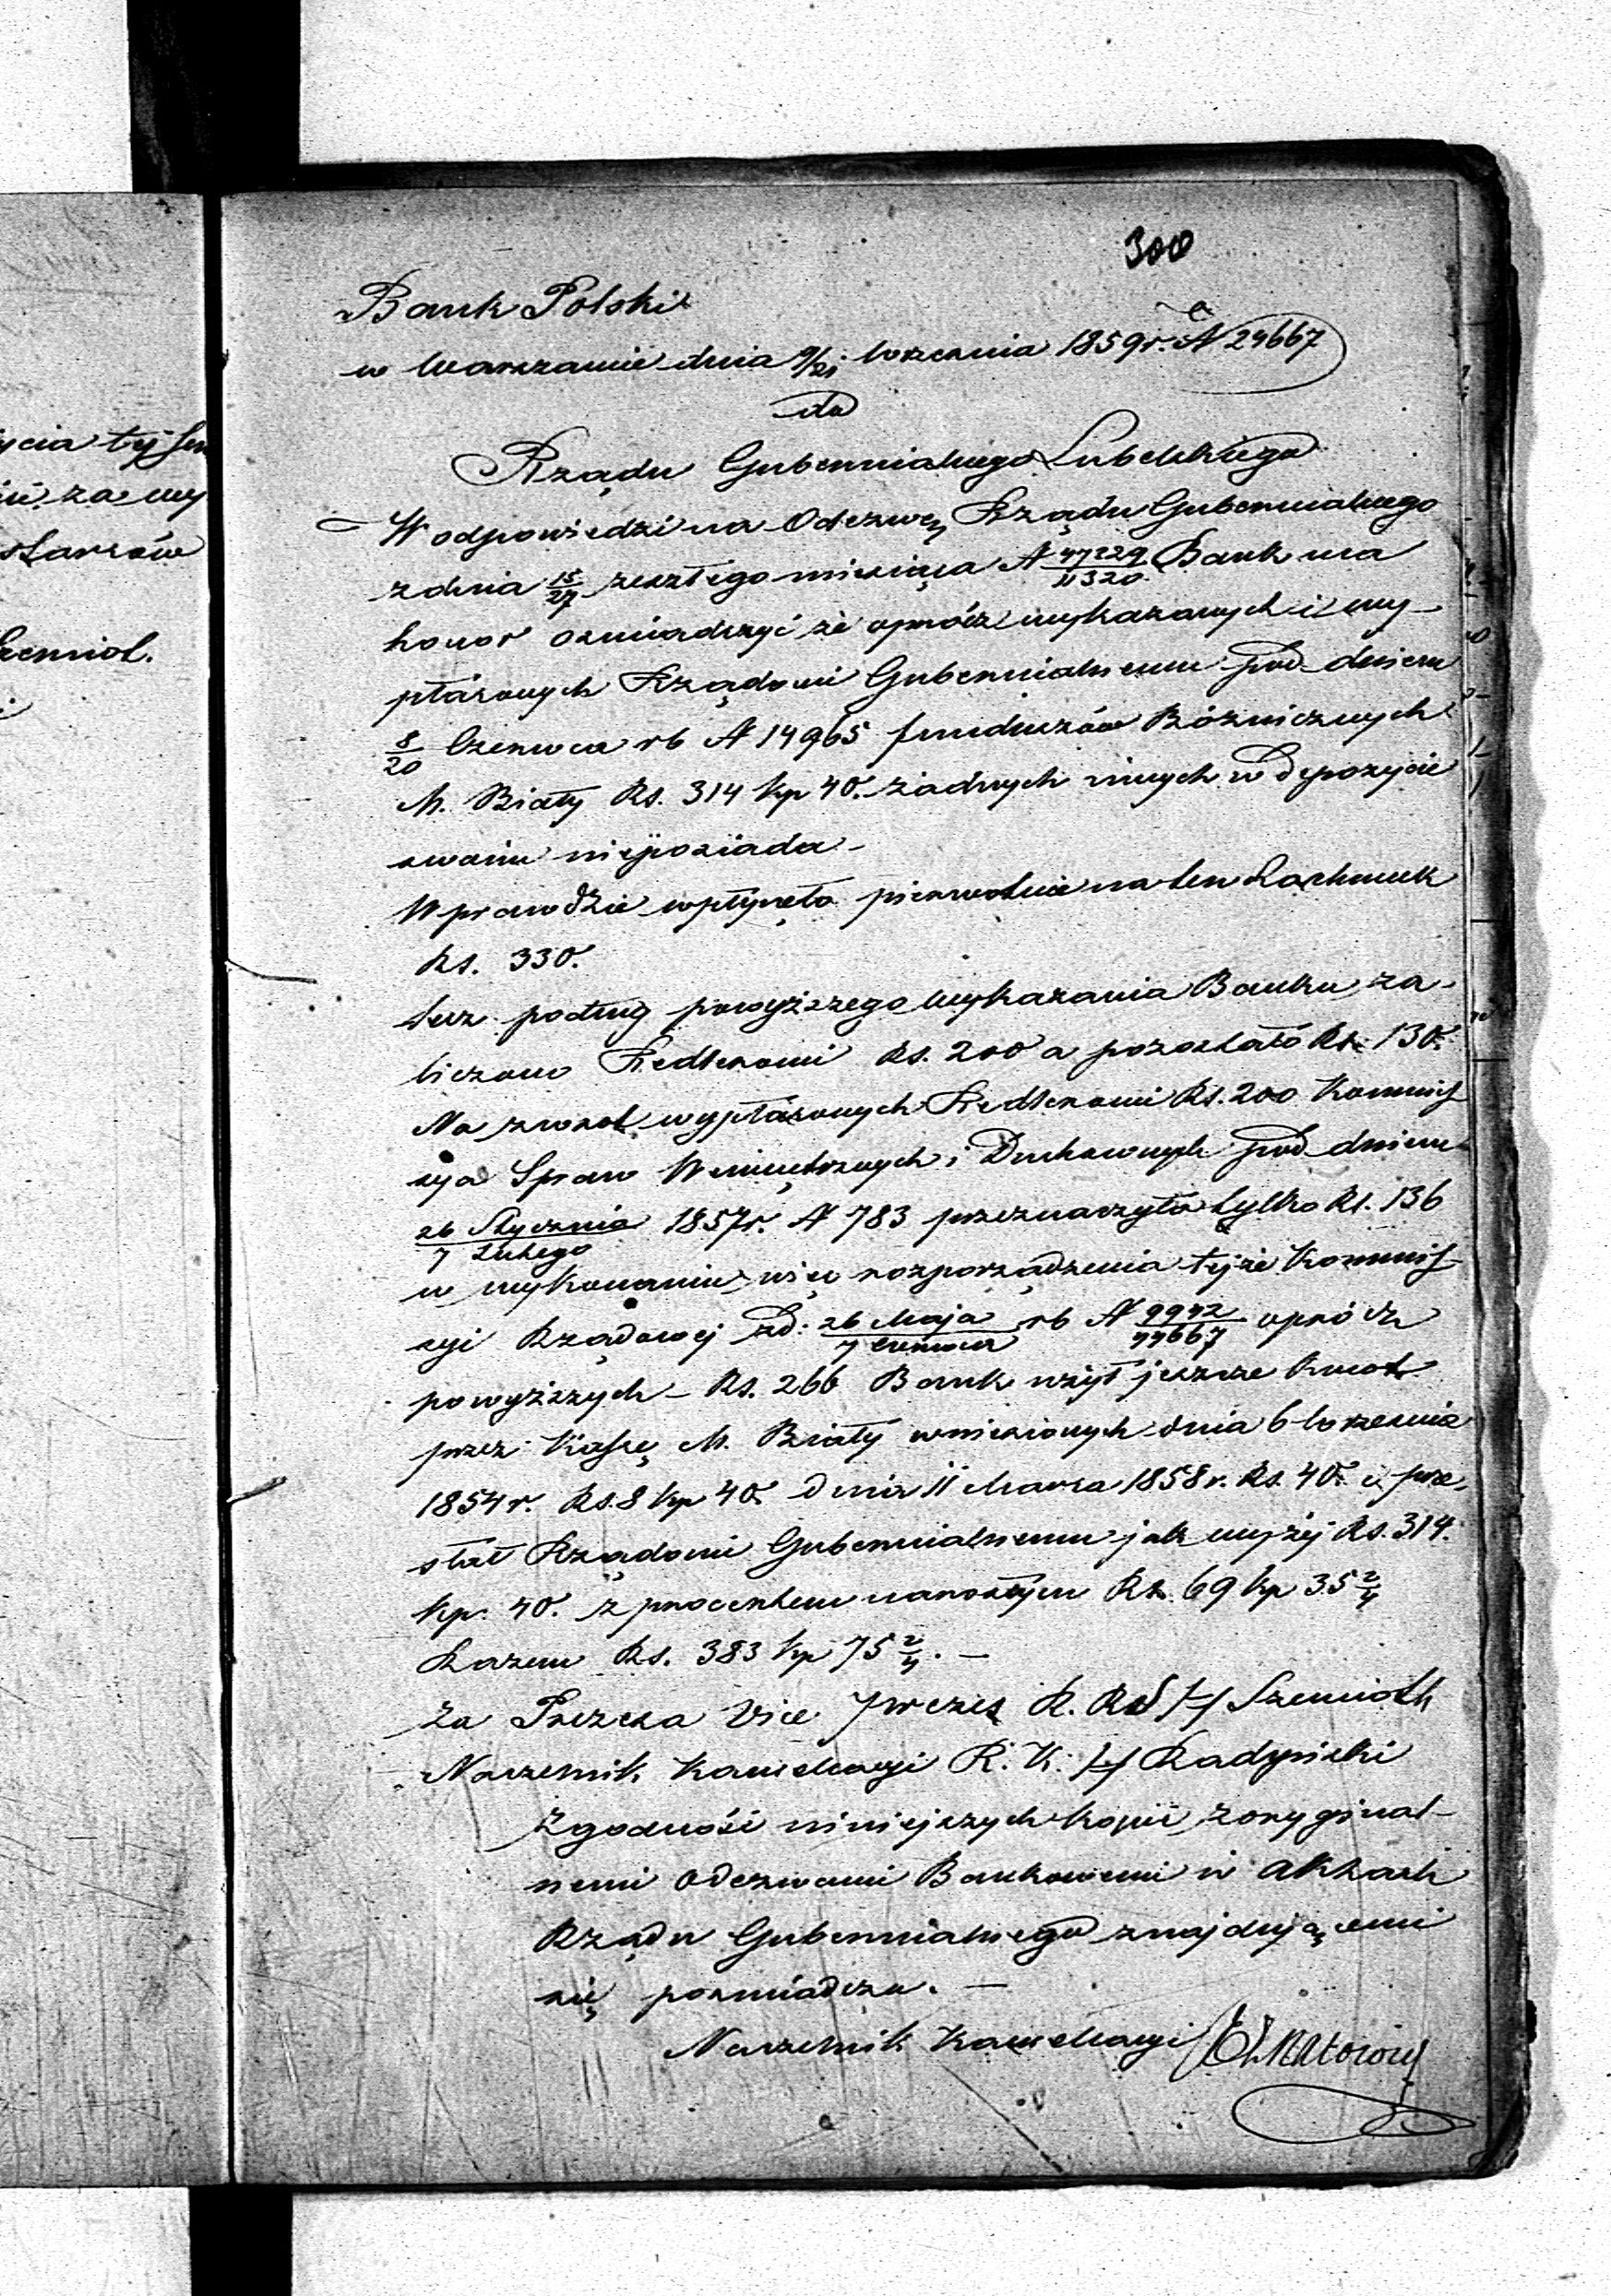 300
Bank Polski
w Warszawie dnia 9/21 Września 1859 r. N 24667
do
Rządu Gubernialnego Lubelskiego
W odpowiedzi na Odezwę Rządu Gubernialnego
z dnia 15/27 zeszłego miesiąca N 47229/11320 Bank ma
honor oświadczyć że oprócz wykazanych i wy-
płaconych Rządowi Gubernialnemu pod dniem
8/20 Czerwca rb N 14965 funduszów Bóżniczych
M. Biały Rs. 314 kp 40. żadnych innych w depozycie
swoim nieposiada -
W prawdzie wpłynęło pierwotnie na ten Rachunek
Rs. 330.
lecz podług powyższego wykazania Banku, za-
liczono Redlerowi Rs. 200 a pozostało Rs. 130.
Na zwrot wypłaconych Redlerowi Rs. 200 Kommis-
sya Spraw Wewnętrznych i Duchownych pod dniem
26 Stycznia/7 Lutego 1857 r. N 783 przeznaczyła tylko Rs. 136
w wykonaniu więc rozporządzenia tejże Kommis-
syi Rządowej z d: 26 Maja/7 Czerwca rb N 9942/44667 oprócz
powyższych - Rs. 266 Bank użył jeszcze kwot
przez Kassę M. Biały wniesionych dnia 6 Września
1854 r. Rs. 8 kp 40. dnia 11 Marca 1858 r. Rs. 40. i prze-
słał Rządowi Gubernialnemu jak wyżej Rs. 314.
kp. 40. z procentem narosłym Rs. 69 kp 35 2/4
Razem Rs. 383 kp 75 2/4. -
Za Prezesa Vice Prezes R. R. S. /-/ Szemioth
Naczelnik Kancellaryi R. K. /-/ Radynicki
Zgodność niniejszych kopii z orygnal-
nemi odezwami Bankowemi w aktach
Rządu Gubernialnego znajdującemi
się poświadcza. -
Naczelnik Kancellaryi
ycia tej
za wy
starców